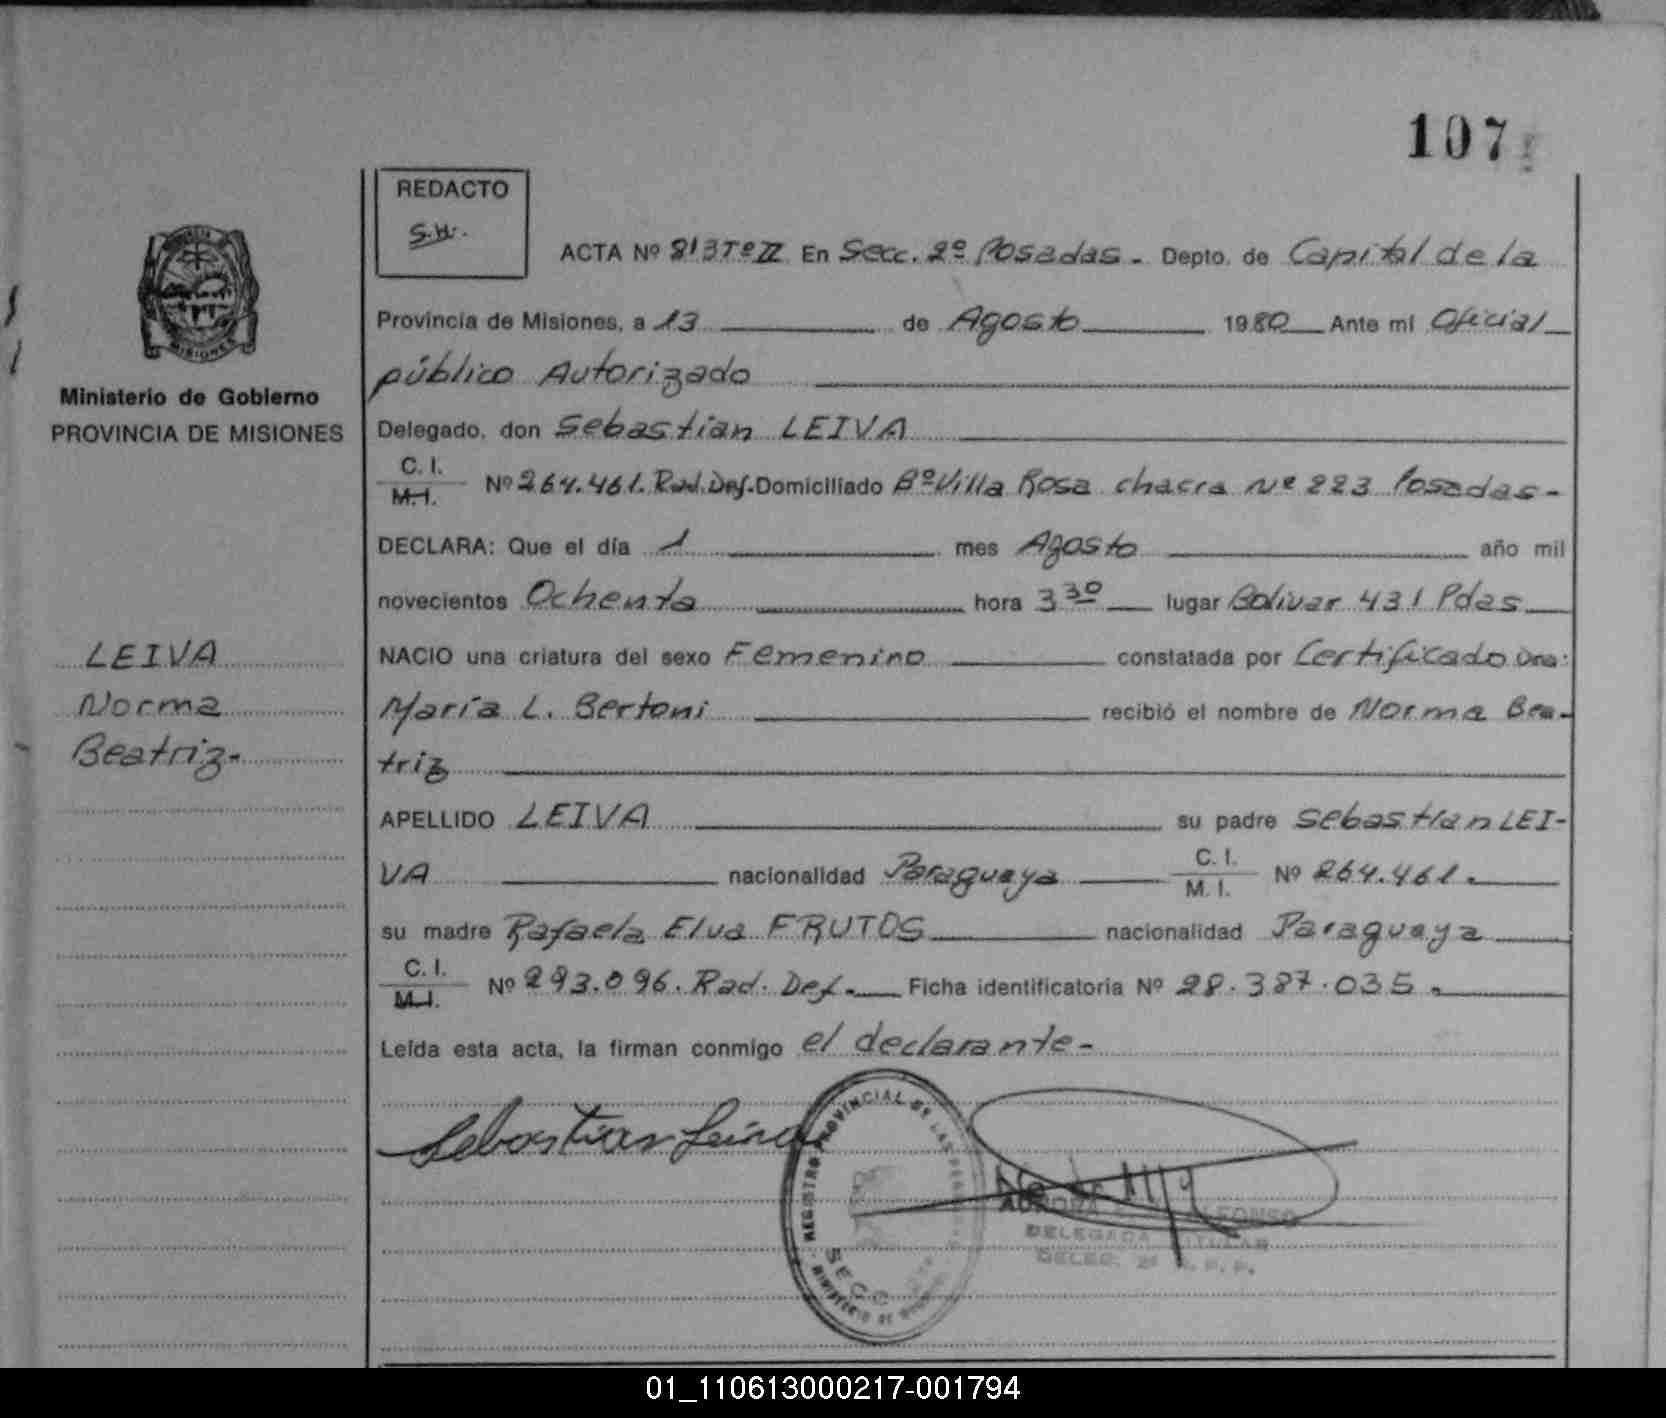 107
REDACTO
S.H.
ACTA Nº 813 Tº II En Secc. 2º Posadas - Depto. de Capital de la
Provincia de Misiones, a 13 de Agosto 1980 Ante mi Oficial
público Autorizado
Ministerio de Gobierno
PROVINCIA DE MISIONES
Delegado, don Sebastian LEIVA
C. I.
M. I.
Nº 264.461. Rad. Def. Domiciliado Bº Villa Rosa chacra Nº 223 Posadas -
DECLARA: Que el día 1 mes Agosto año mil
novecientos Ochenta hora 3 30 lugar Bolivar 431 Pdas
LEIVA
Norma
Beatriz -
NACIO una criatura del sexo Femenino constatada por Certificado Dra:
María L. Bertoni recibió el nombre de Norma Bea-
triz
APELLIDO LEIVA su padre Sebastian LEI-
VA nacionalidad Paraguaya C. I. M. I. Nº 264.461.
su madre Rafaela Elva FRUTOS nacionalidad Paraguaya
C. I.
M. I.
Nº 293.096. Rad. Def. Ficha identificatoria Nº 28.387.035.
Leída esta acta, la firman conmigo el declarante -
Sebastian Leiva
REGISTRO PROVINCIAL DE LAS PERSONAS
SECC.
MINISTERIO DE GOBIERNO
AURORA ALFONSO
DELEGADA TITULAR
DELEG. 2ª R. P. P.
01_110613000217-001794